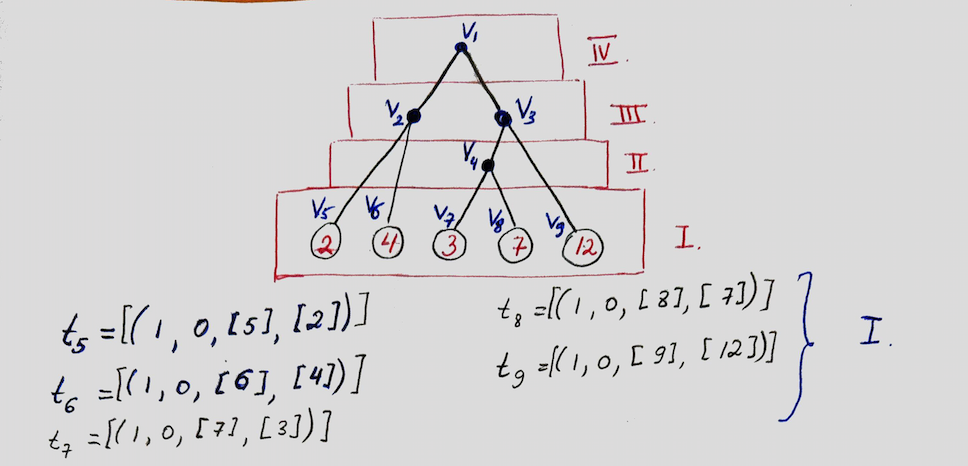 V₁
IV.
V₂ V₃
III.
V₄
II.
V₅ V₆ V₇ V₈ V₉
2 4 3 7 12
I.
t₅=[(1, 0, [5], [2])]
t₆=[(1, 0, [6], [4])]
t₇=[(1, 0, [7], [3])]
t₈=[(1, 0, [8], [7])]
t₉=[(1, 0, [9], [12])]
I.